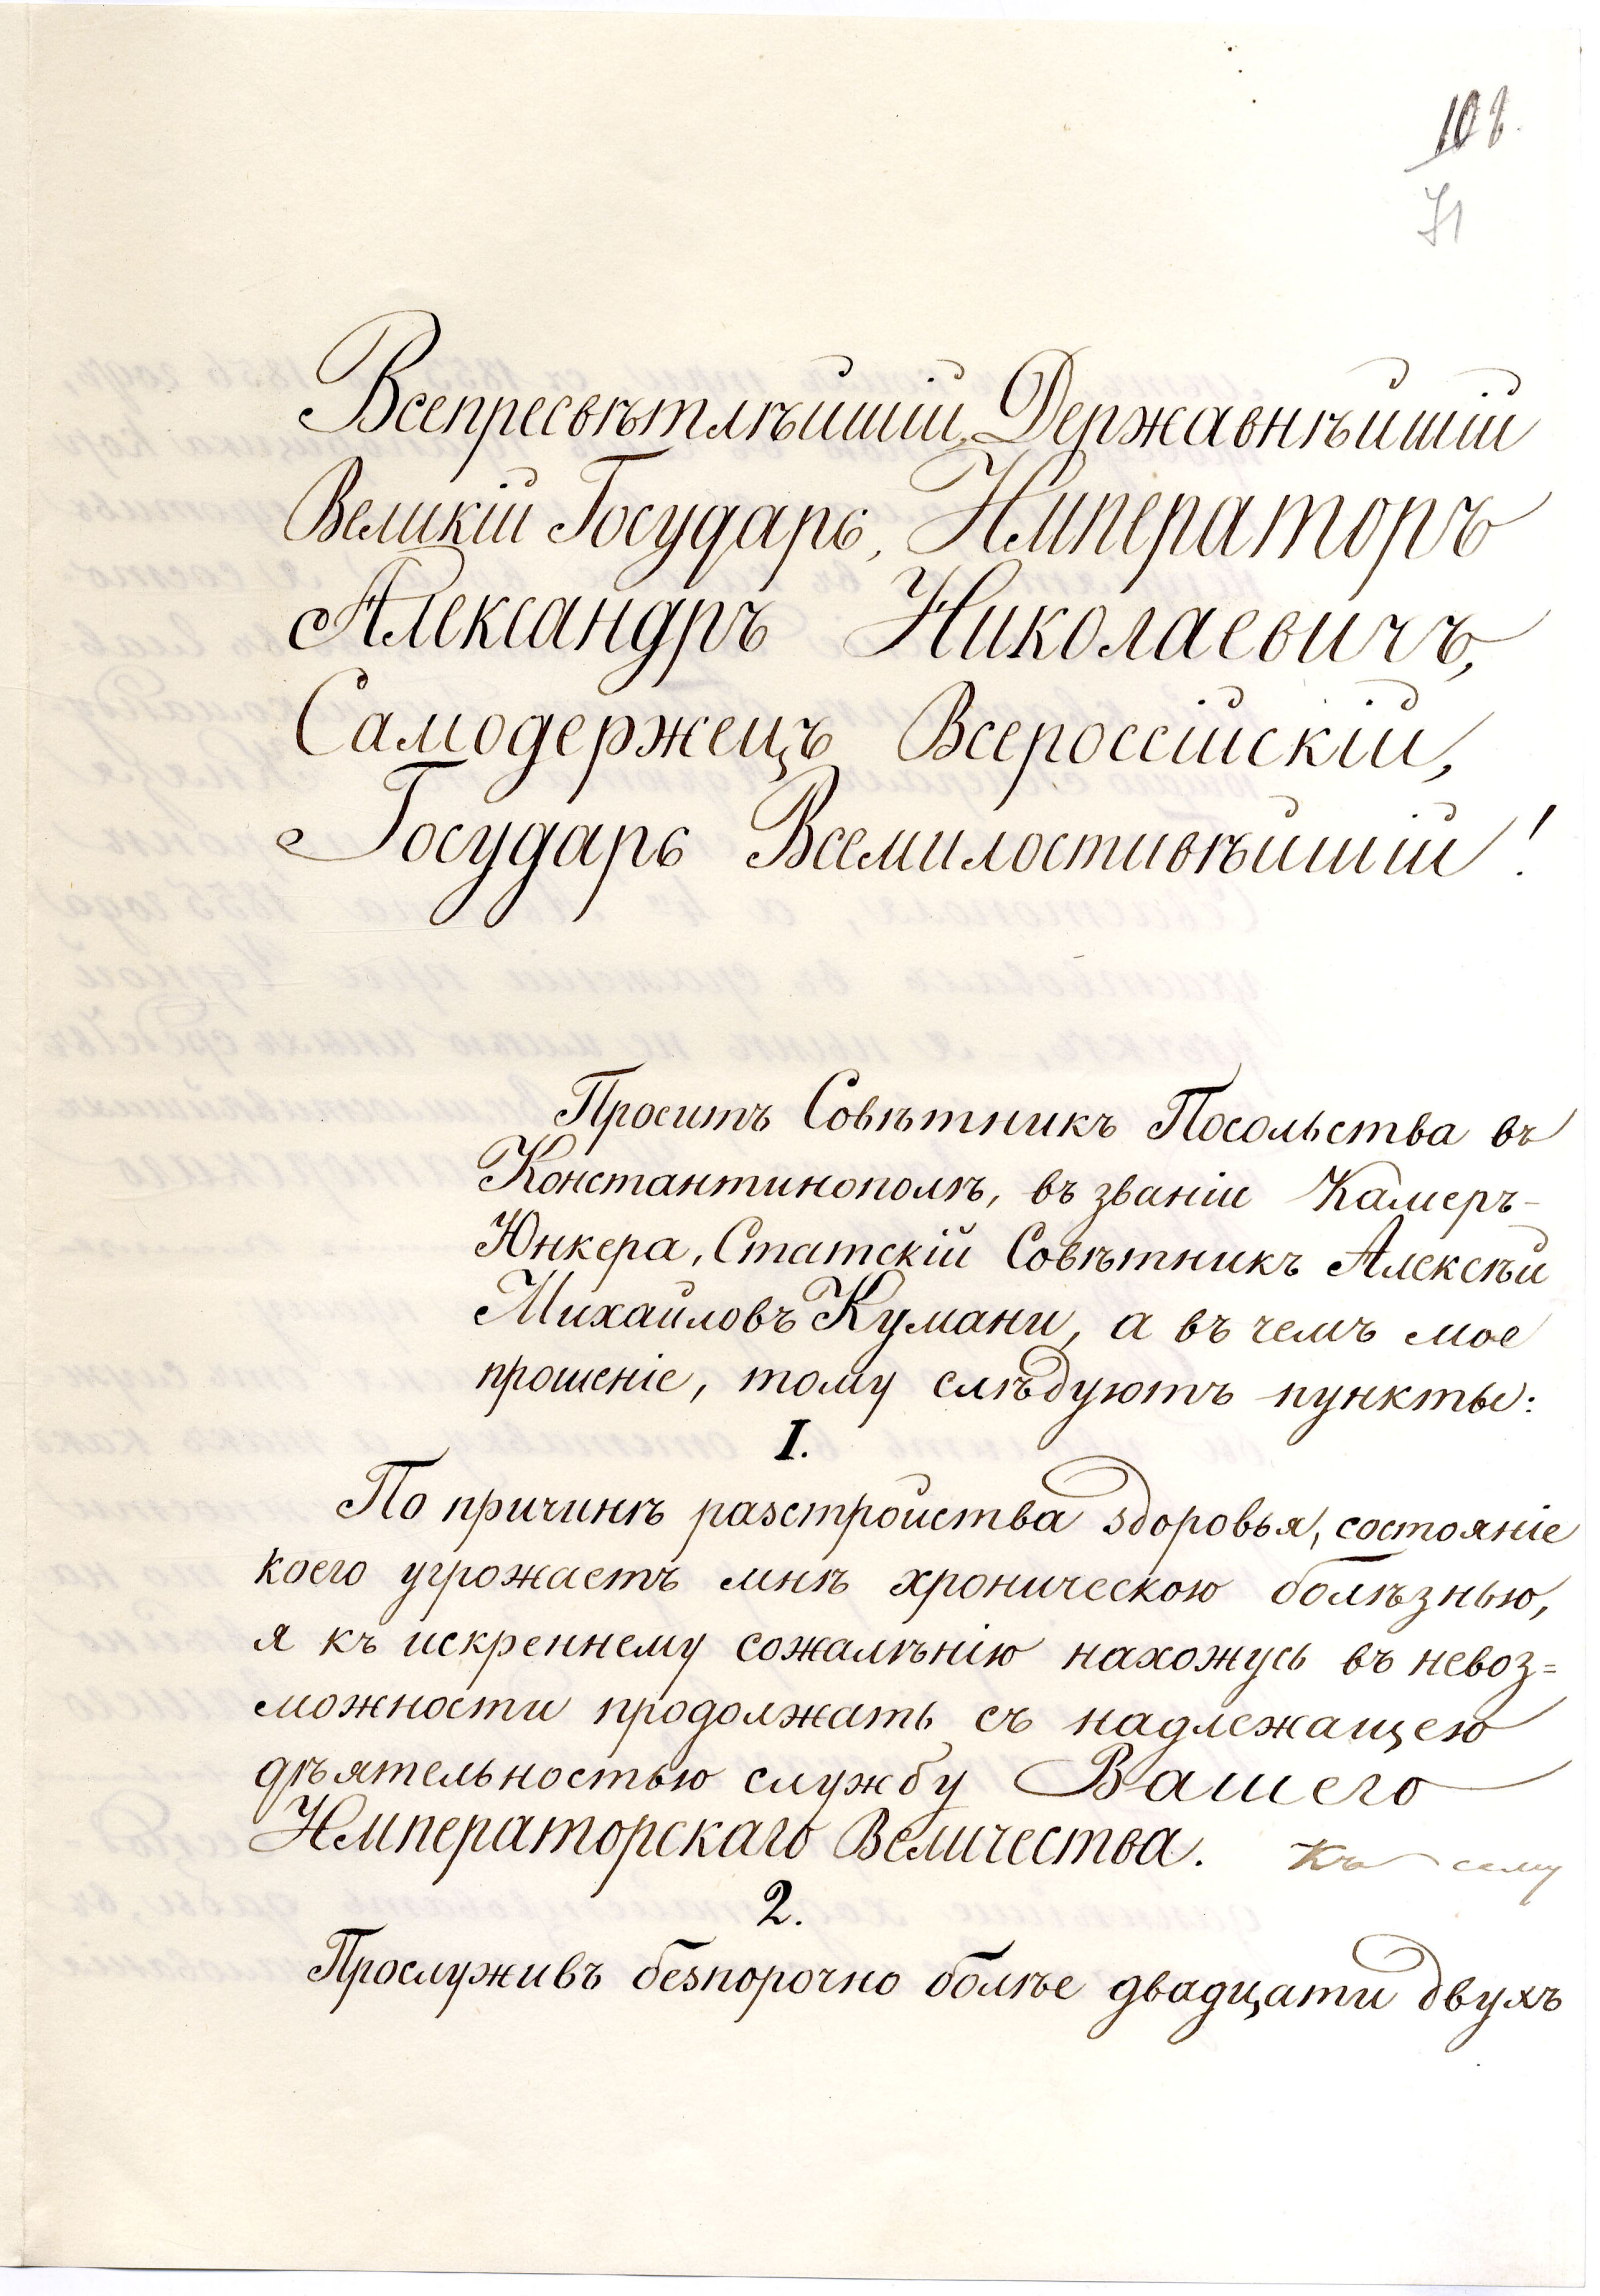 108.
71
Всепресвѣтлѣйшій, Державнѣйшій
Великій Государь, Императоръ
Александръ Николаевичъ,
Самодержецъ Всероссійскій,
Государь Всемилостивѣйшій!
Проситъ Совѣтникъ Посольства въ
Константинополѣ, въ званіи Камеръ-
Юнкера, Статскій Совѣтникъ Алексѣй
Михайловъ Кумани, а въ чемъ мое
прошеніе, тому слѣдуютъ пункты:
I.
По причинѣ разстройства здоровья, состояніе
коего угрожаетъ мнѣ хроническою болѣзнью,
я къ искреннему сожалѣнію нахожусь въ невоз=
можности продолжать съ надлежащею
дѣятельностью службу Вашего
Императорскаго Величества. Къ сему
2.
Прослуживъ безпорочно болѣе двадцати двухъ